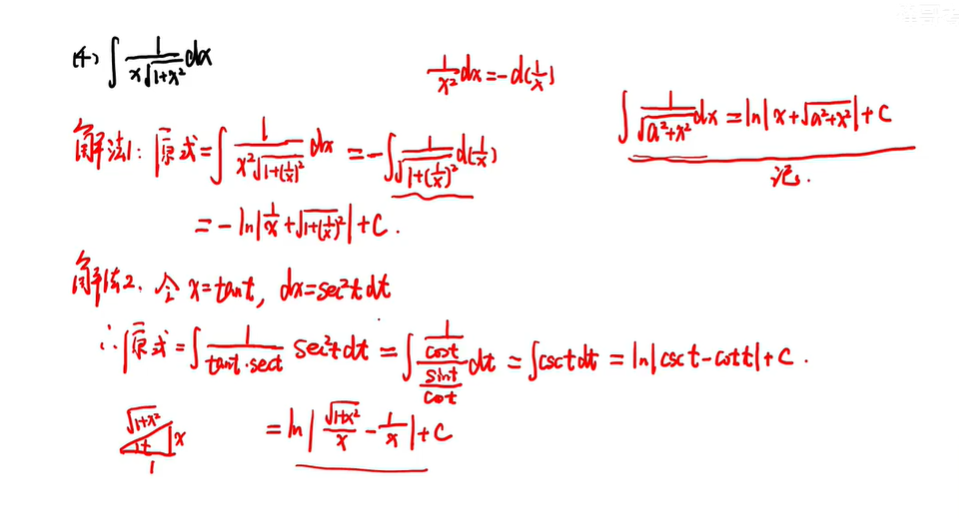 (4) ∫ 1/(x√(1+x²)) dx
1/x² dx = -d(1/x)
∫ 1/√(a²+x²) dx = ln|x+√(a²+x²)|+C
记.
解法1: 原式 = ∫ 1/(x²√(1+(1/x)²)) dx = -∫ 1/√(1+(1/x)²) d(1/x)
= -ln|1/x+√(1+(1/x)²)|+C.
解法2. 令 x=tant, dx=sec²t dt
∴ 原式 = ∫ 1/(tant·sect) sec²t dt = ∫ (1/cost)/(sint/cost) dt = ∫csct dt = ln|csct-cott|+C.
√(1+x²) t x 1
= ln|√(1+x²)/x - 1/x|+C